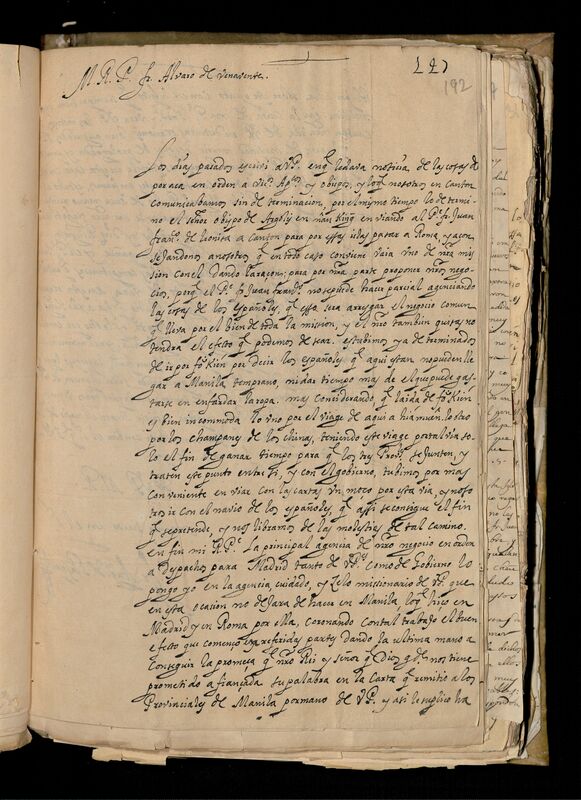 M. R. P. fr. Alvaro de Venavente.
147
192
Los dias pasados escrivi a VP. en q̃ le dava noticia de las cosas de
por aca en orden a Vic.ˢ Ap.ᶜᵒˢ y obispos, y lo q̃ nosotros en Canton
comunicabamos sin determinacion, por el mismo tiempo lo determi-
no el señor obispo de Argoli en nan king enviando al P.ᵉ fr. Juan
fran.ᶜᵒ de leonisa a Canton para por essas islas pasar a Roma, y acon
sejandonos a nosotros q̃ en todo caso conviene vaia uno de nr̃a mi
sion con el dando la raçon; para por nr̃a parte proponer nr̃os nego-
cios, porq̃ el P.ᵉ fr Juan fran.ᶜᵒ no se puede hacer parcial agenciando
las cosas de los Españoles, q̃ esso sera arresgar el negocio comun
q̃ lleva por el bien de toda la mission, y el nr̃o tambien quisas no
tendra el efecto q̃ podemos desear. estubimos ya determinados
de ir por fo kien por decir los españoles q̃ aqui estan no pueden lle
gar a Manila temprano, ni dar tiempo mas de el que puede gas-
tarse en enfardar la ropa. mas considerando q̃ la ida de fo kien
es bien incommoda lo uno por el viage de aqui a hiámuên, lo otro
por los champanes de los chinas, teniendo este viage por tal via so-
lo el fin de ganar tiempo para q̃ los tres Prov.ˢ se junten, y
traten este punto entre si, y con el govierno, tubimos por mas
conveniente enviar con las cartas un moço por esta via, y noso
tros ir con el navio de los españoles, q̃ assi se consigue el fin
q̃ se pretende, y nos libramos de las molestias de tal camino.
En fin mi R. P.ᵉ La principal agencia de nr̃o negocio en orden
a despachos para Madrid tanto de VP. como de Govierno lo
pongo yo en la agencia, cuidado, y zelo missionario de VP. que
en esta ocasion no dejara de hacer en Manila, lo q̃ hiço en
Madrid, y en Roma por ella, coronando con tal trabajo el buen
efecto que començo en referidas partes dando la ultima mano a
conseguir la promesa q̃ nr̃o Rei y Señor q̃ Dios g.ᵈᵉ nos tiene
prometido afiançada su palabra en la Carta q̃ remitio a los
Provinciales de Manila por mano de VP. y assi le suplico ha